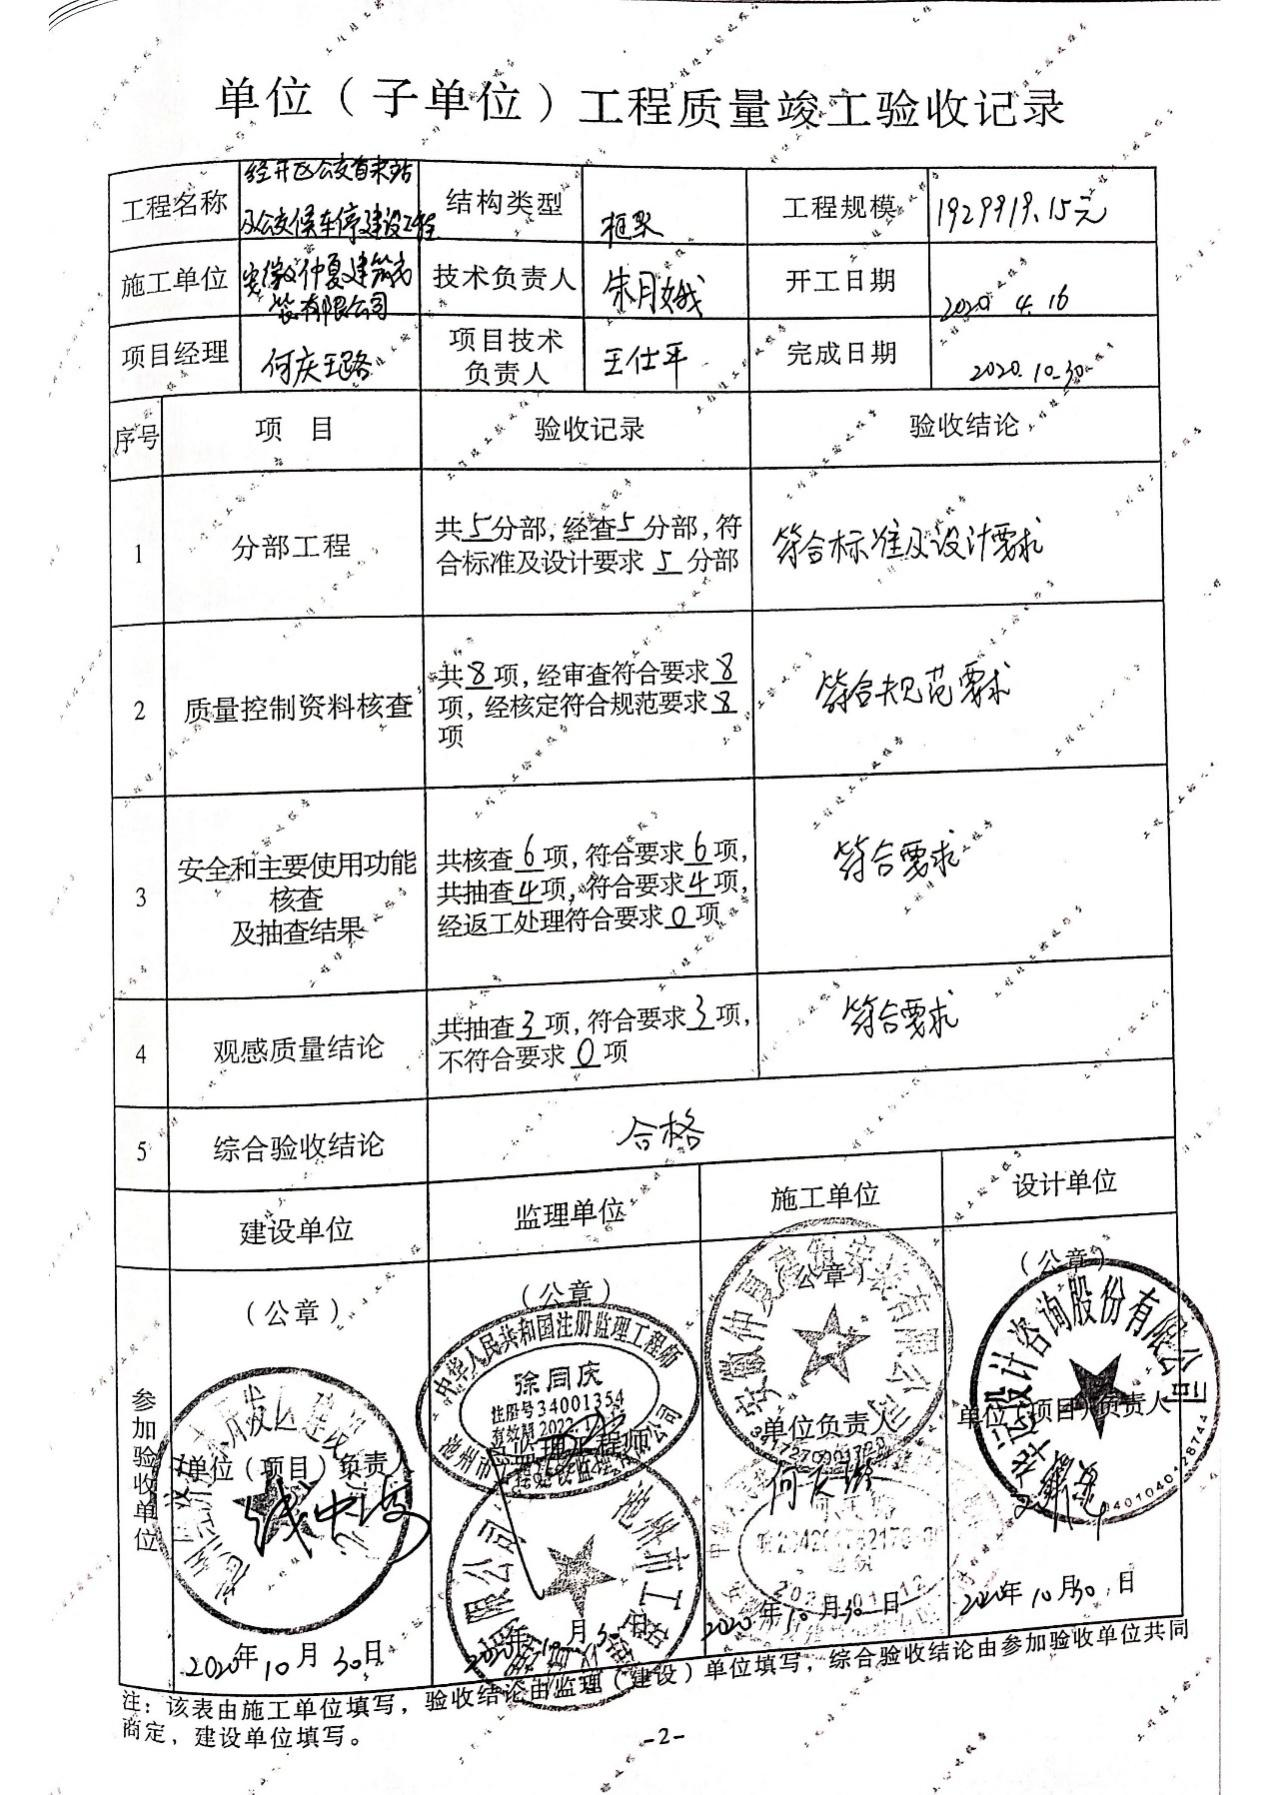 单位（子单位）工程质量竣工验收记录
工程名称
经开区公交首末站
及公交候车停建设工程
结构类型
框架
工程规模
1929919.15元
施工单位
安徽仲夏建筑安
装有限公司
技术负责人
朱月娥
开工日期
2020 4.16
项目经理
何庆璐
项目技术
负责人
王仕平
完成日期
2020.10.30
序号
项 目
验收记录
验收结论
1
分部工程
共5分部，经查5分部，符
合标准及设计要求5分部
符合标准及设计要求
2
质量控制资料核查
共8项，经审查符合要求8
项，经核定符合规范要求8
项
符合规范要求
3
安全和主要使用功能
核查
及抽查结果
共核查6项，符合要求6项，
共抽查4项，符合要求4项，
经返工处理符合要求0项
符合要求
4
观感质量结论
共抽查3项，符合要求3项，
不符合要求0项
符合要求
5
综合验收结论
合格
参加验收单位
建设单位
监理单位
施工单位
设计单位
（公章）
（公章）
（公章）
（公章）
单位（项目）负责人
总监理工程师
单位负责人
单位（项目）负责人
中华人民共和国注册监理工程师
徐同庆
注册号34001354
有效期2022
安徽仲夏建筑安装有限公司
设计咨询股份有限公司
2020年10月30日
2020年10月30日
2020年10月30日
2020年10月30日
注：该表由施工单位填写，验收结论由监理（建设）单位填写，综合验收结论由参加验收单位共同
商定，建设单位填写。
-2-